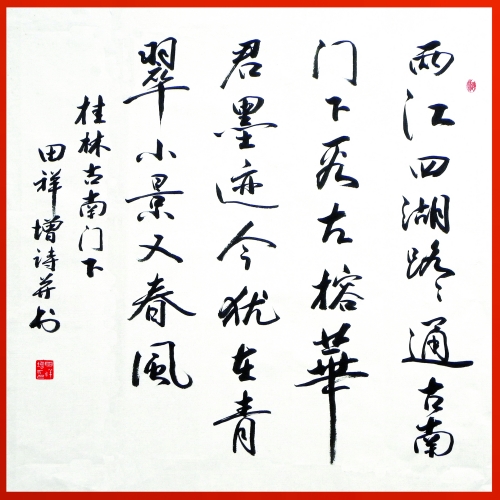 两江四湖路々通古南
门下看古榕華
君墨迹今犹在青
翠小景又春風
桂林古南门下
田祥增诗并书